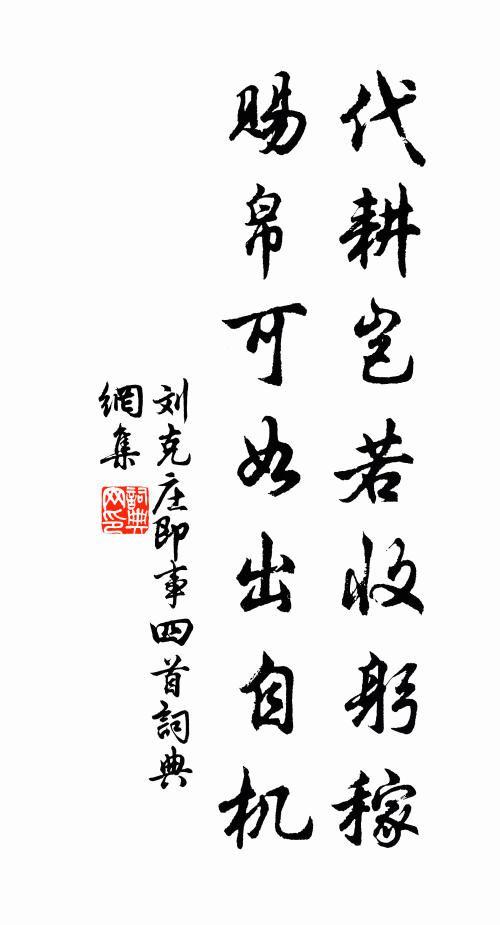 代耕岂若收躬稼
赐帛可如出自机
刘克庄即事四首詞典
網集
詞典
网印